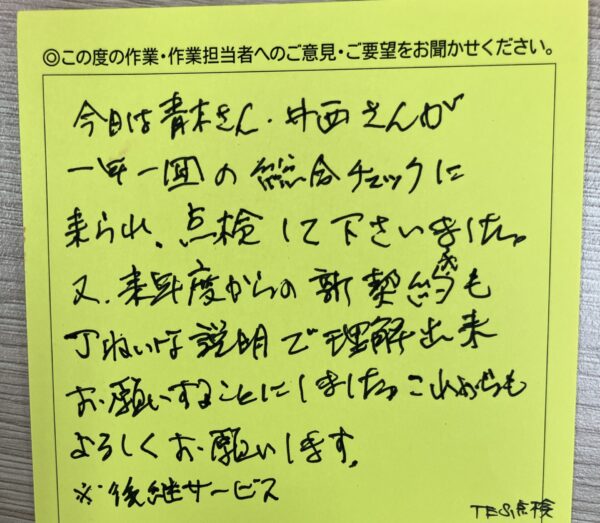 ◎この度の作業・作業担当者へのご意見・ご要望をお聞かせください。
今日は青木さん・中西さんが
一年一回の総合チェックに
来られ、点検して下さいました。
又、来年度からの新契約※も
丁ねいな説明で理解出来
お願いすることにしました。これからも
よろしくお願いします。
※後継サービス
TES点検